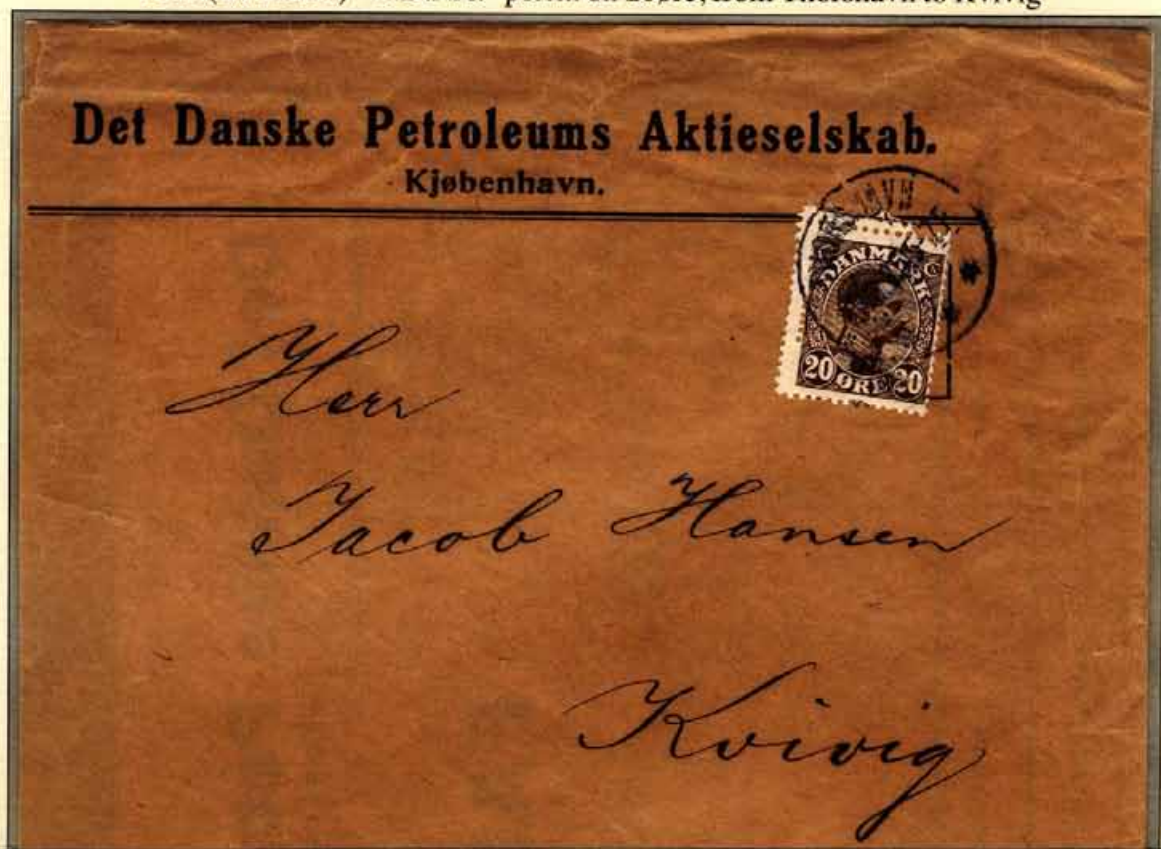 Det Danske Petroleums Aktieselskab.
Kjøbenhavn.
DANMARK
20 ØRE 20
Herr
Jacob Hansen
Kvivig